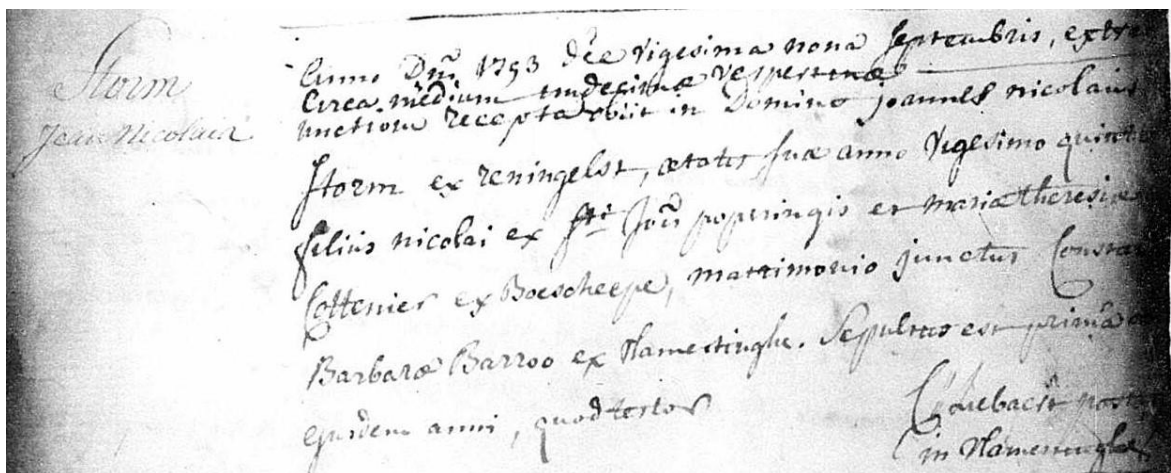 Storm
Jean Nicolaus
Anno Dni 1793 die vigesima nona septembris, extre
circa medium undecimæ vespertinæ
unctione recepta obiit in Domino joannes nicolaus
Storm ex reningelst, ætatis suæ anno vigesimo quinto
filius nicolai ex sti Jois poperingis et mariæ theresiæ
Cottenier ex Boescheepe, matrimonio junctus Constan
Barbaræ Barroo ex vlamertinghe. Sepultus est prima
ejusdem anni, quod testor
in vlamertinghe